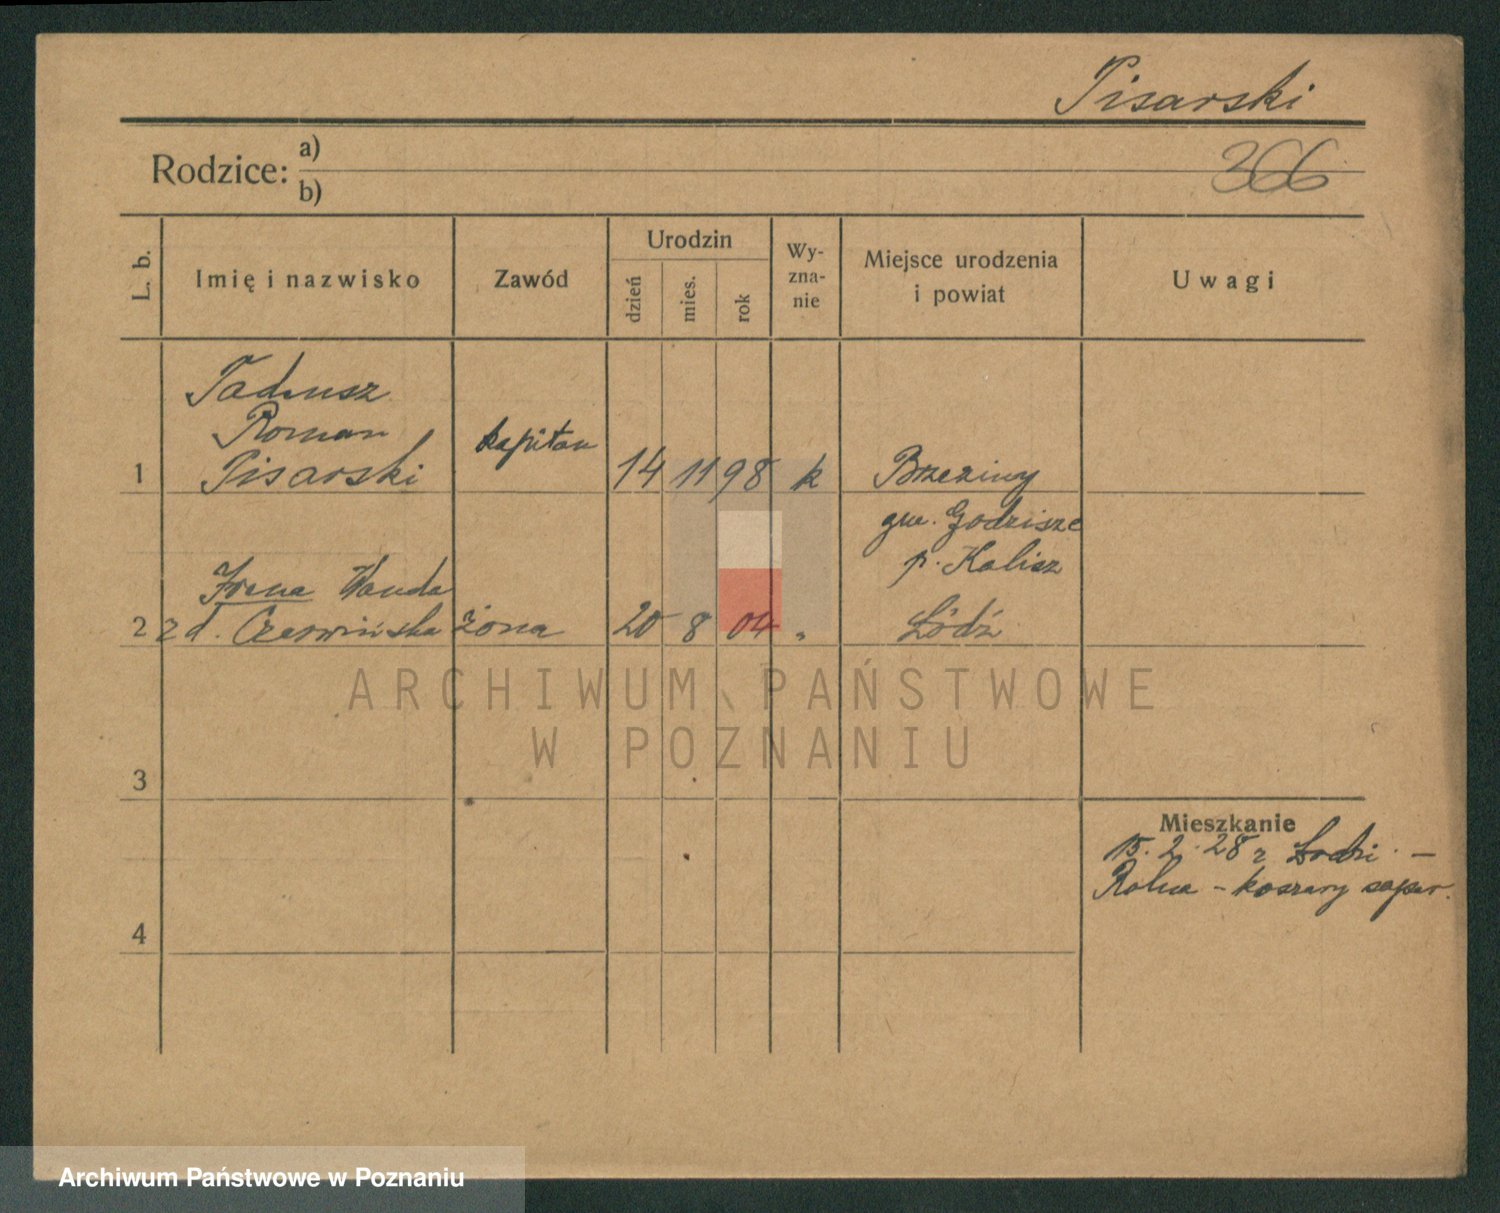 Pisarski
Rodzice: a)
b)
366
L. b.
Imię i nazwisko
Zawód
Urodzin
dzień
mies.
rok
Wy-
zna-
nie
Miejsce urodzenia
i powiat
Uwagi
Tadeusz
Roman
1 Pisarski kapitan 14 11 98 k Brzeziny
gm. Godzisze
p. Kalisz
Irena Wanda
2 z d. Czerwińska żona 20 8 04 " Łódź
3
4
Mieszkanie
15. 2. 28 z Łodzi. –
Rolna – koszary saper.
ARCHIWUM PAŃSTWOWE
W POZNANIU
Archiwum Państwowe w Poznaniu